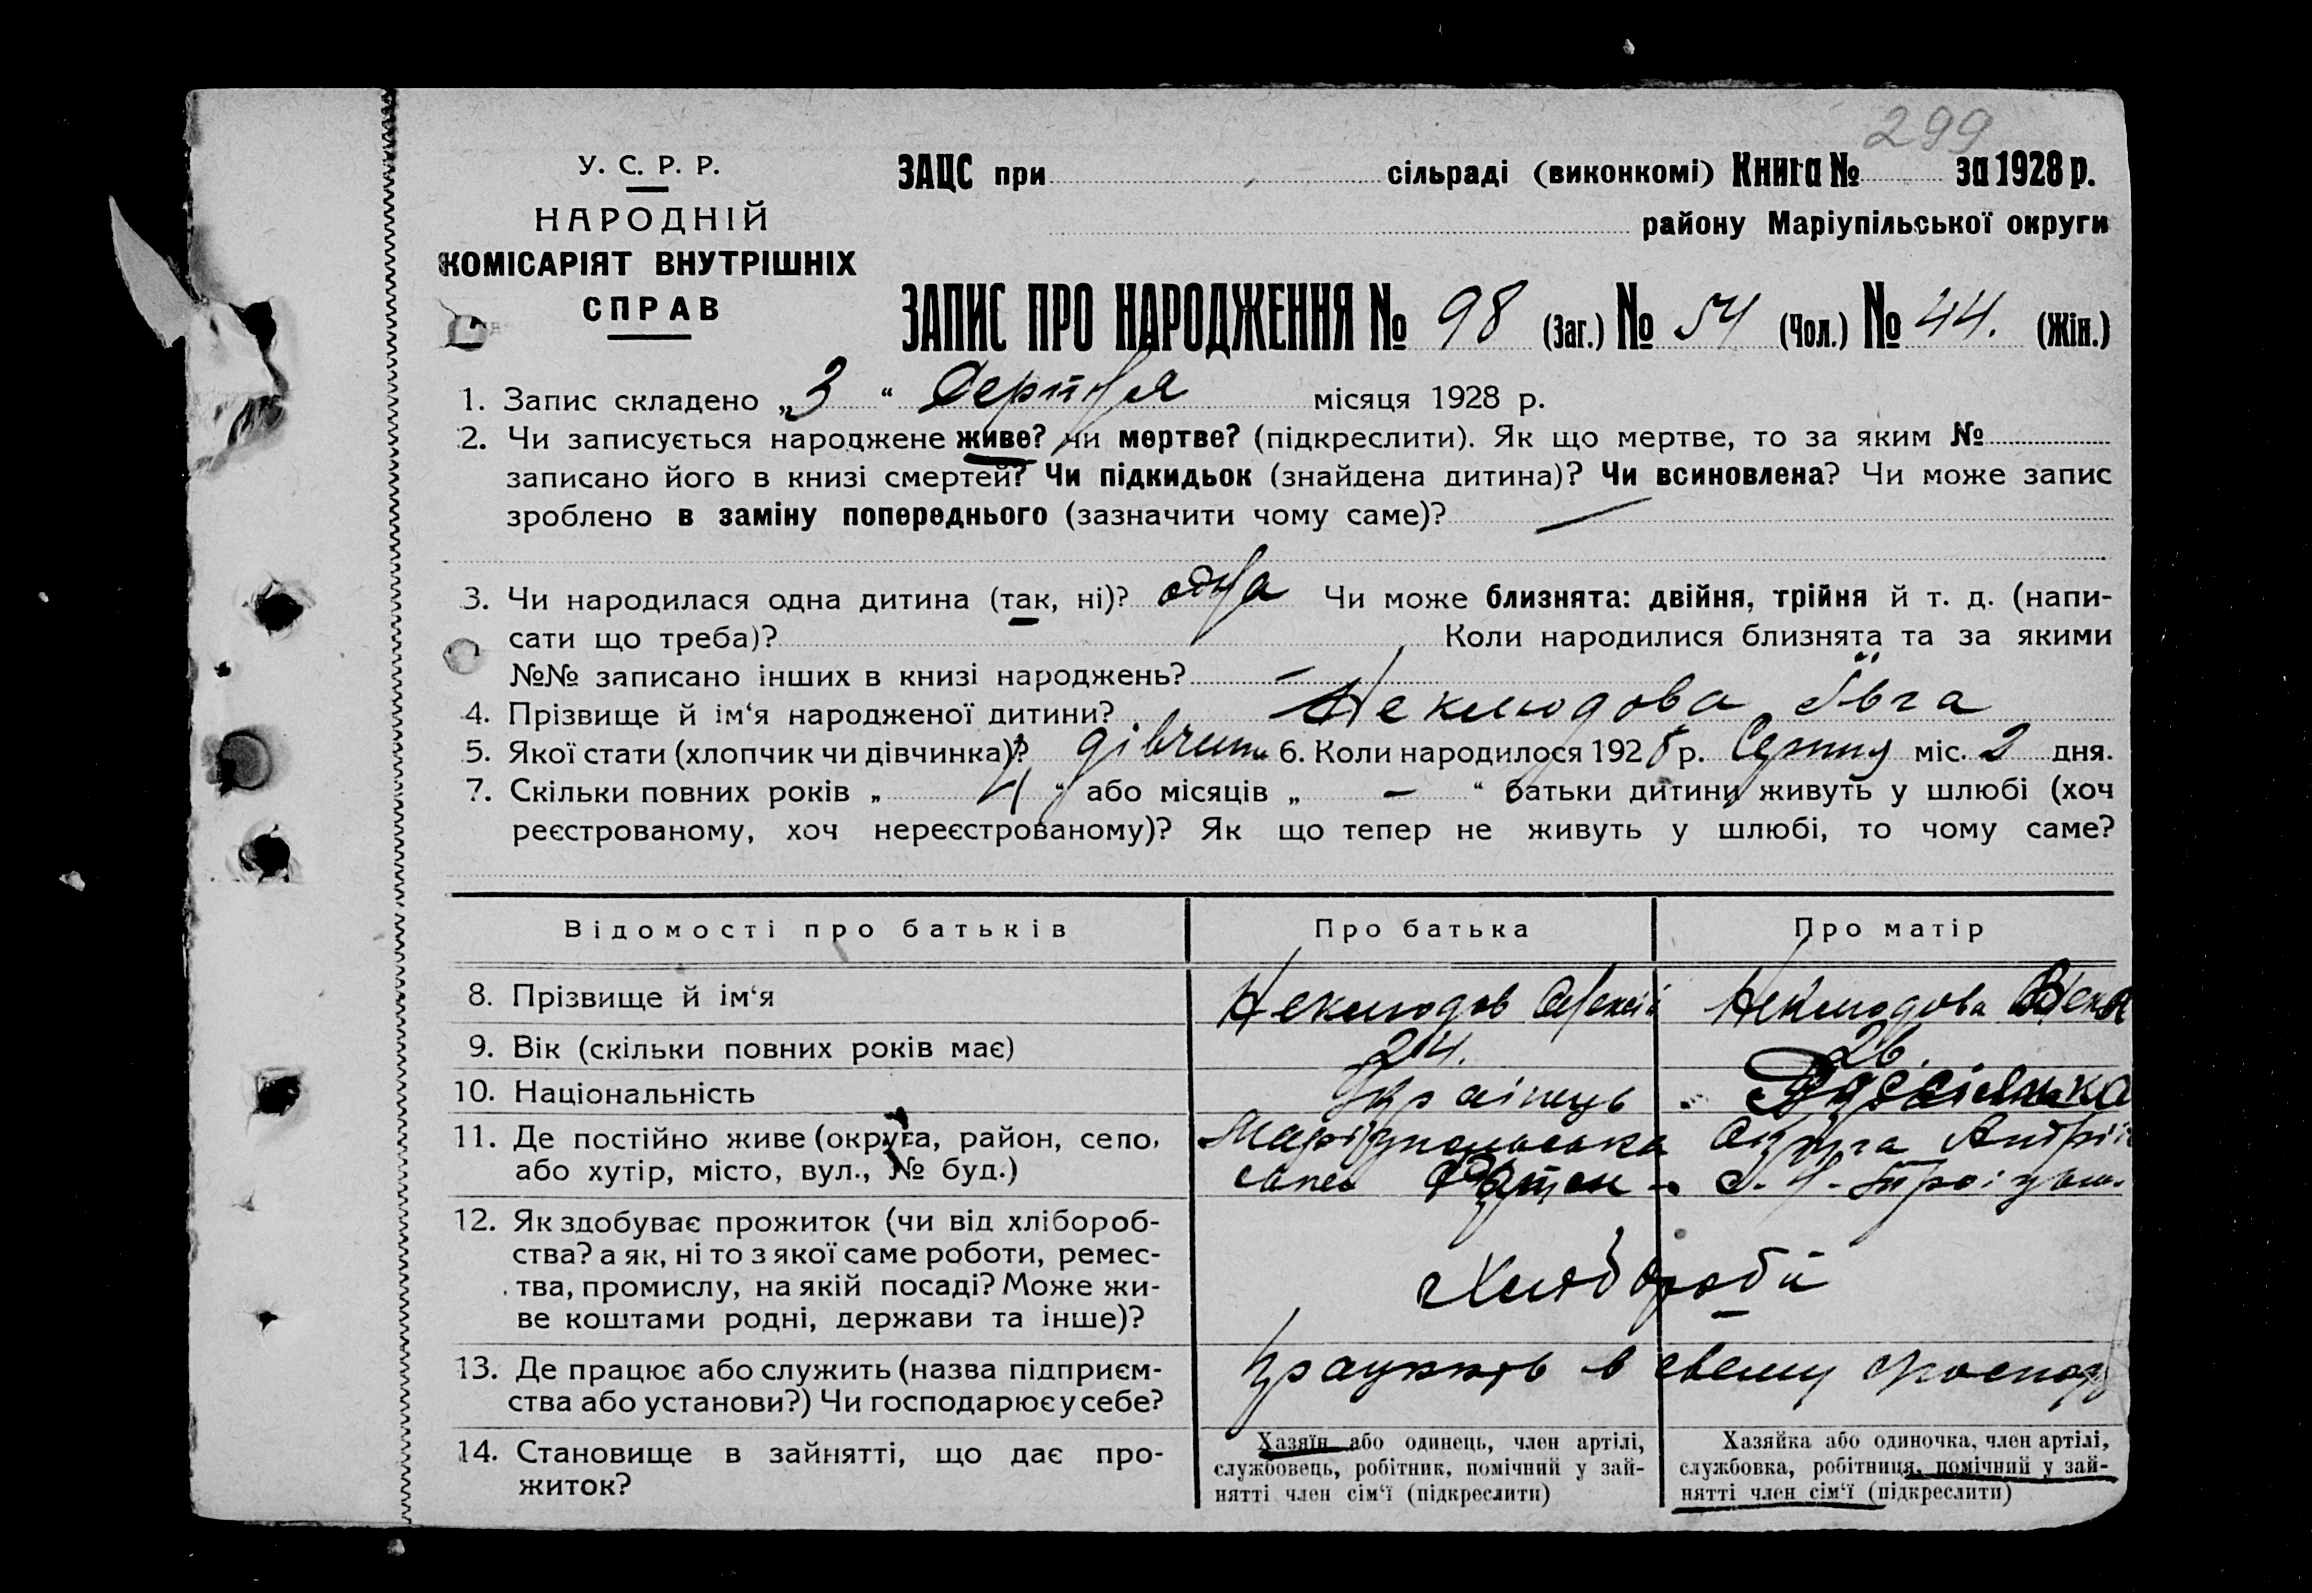 299
У. С. Р. Р.
НАРОДНІЙ
КОМІСАРІЯТ ВНУТРІШНІХ
СПРАВ
ЗАЦС при сільраді (виконкомі) Книга № за 1928 р.
району Маріупільської округи
ЗАПИС ПРО НАРОДЖЕННЯ № 98 (Заг.) № 54 (Чол.) № 44. (Жін.)
1. Запис складено „3“ Серпня місяця 1928 р.
2. Чи записується народжене живе? чи мертве? (підкреслити). Як що мертве, то за яким №
записано його в книзі смертей? Чи підкидьок (знайдена дитина)? Чи всиновлена? Чи може запис
зроблено в заміну попереднього (зазначити чому саме)? —
3. Чи народилася одна дитина (так, ні)? одна Чи може близнята: двійня, трійня й т. д. (напи-
сати що треба)? Коли народилися близнята та за якими
№№ записано інших в книзі народжень? —
4. Прізвище й ім‘я народженої дитини? Неклюдова Ївга
5. Якої стати (хлопчик чи дівчинка)? дівчин. 6. Коли народилося 1928 р. Серпня міс. 2 дня.
7. Скільки повних років „ 4 “ або місяців „ — “ батьки дитини живуть у шлюбі (хоч
реєстрованому, хоч нереєстрованому)? Як що тепер не живуть у шлюбі, то чому саме?
Відомості про батьків Про батька Про матір
8. Прізвище й ім‘я Неклюдов Неклюдова
9. Вік (скільки повних років має) 24. 26.
10. Національність Українець
11. Де постійно живе (округа, район, село, Маріупольська Округа
або хутір, місто, вул., № буд.)
12. Як здобуває прожиток (чи від хлібороб-
ства? а як, ні то з якої саме роботи, ремес-
тва, промислу, на якій посаді? Може жи-
ве коштами родні, держави та інше)?
Хлібороби
13. Де працює або служить (назва підприєм-
ства або установи?) Чи господарює у себе?
Працюють в своему господ
14. Становище в зайнятті, що дає про-
житок?
Хазяїн або одинець, член артілі,
службовець, робітник, помічний у зай-
нятті член сім‘ї (підкреслити)
Хазяйка або одиночка, член артілі,
службовка, робітниця, помічний у зай-
нятті член сім‘ї (підкреслити)